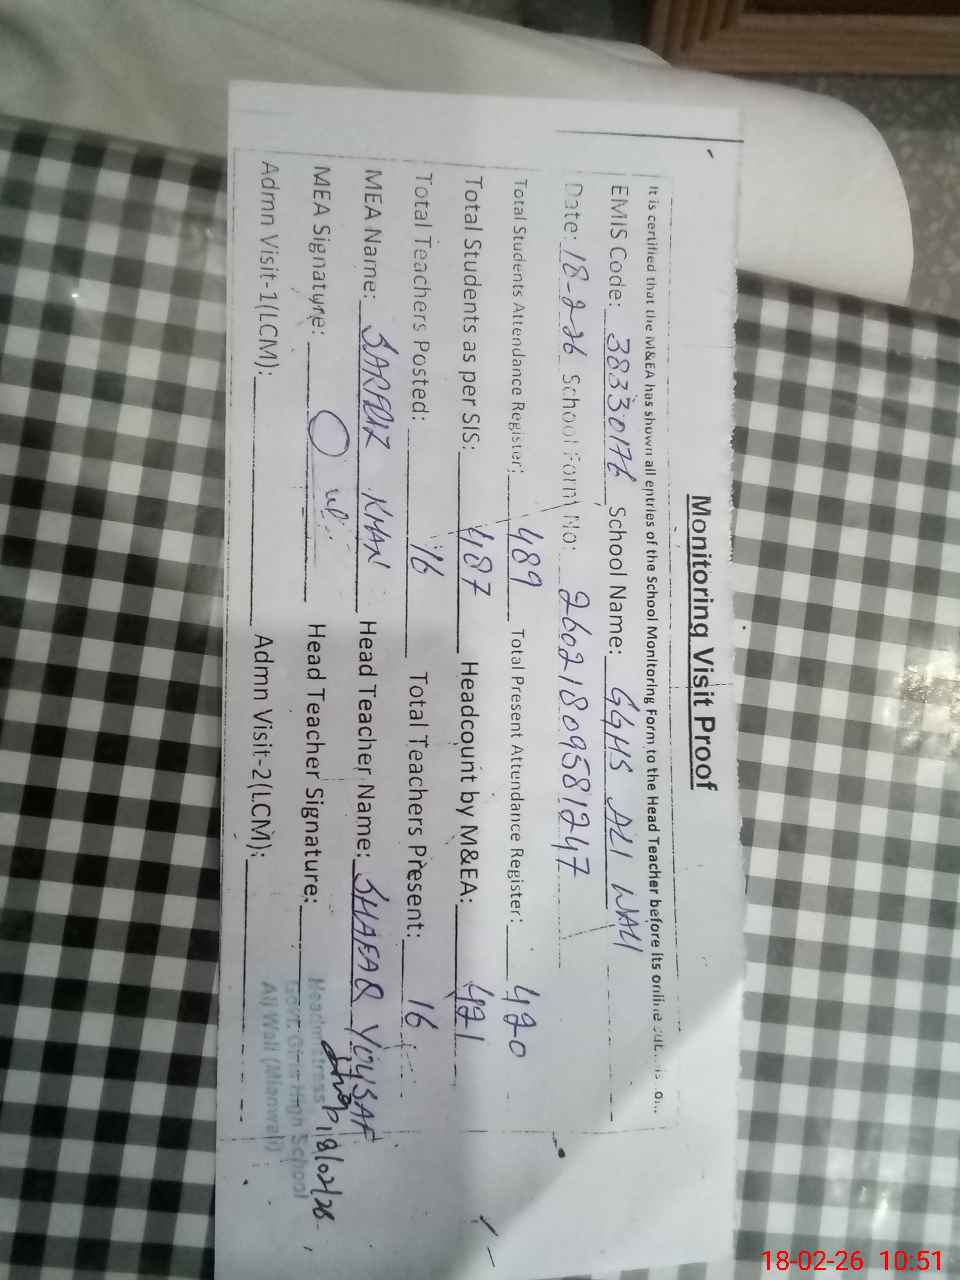 Monitoring Visit Proof
It is certified that the M&EA has shown all entries of the School Monitoring Form to the Head Teacher before its online
EMIS Code: 38330176 School Name: GGHS ALI WALI
Date: 18-2-26 School Form No: 26021809581247
Total Students Attendance Register: 489 Total Present Attendance Register: 420
Total Students as per SIS: 487 Headcount by M&EA: 421
Total Teachers Posted: 16 Total Teachers Present: 16
MEA Name: SARFRAZ KHAN Head Teacher Name: SHAFAQ YOUSAF
MEA Signature: Head Teacher Signature: 18/02/26
Headmistress
Govt. Girls High School
Ali Wali (Mianwali)
Admn Visit-1(LCM): Admn Visit-2(LCM):
18-02-26 10:51